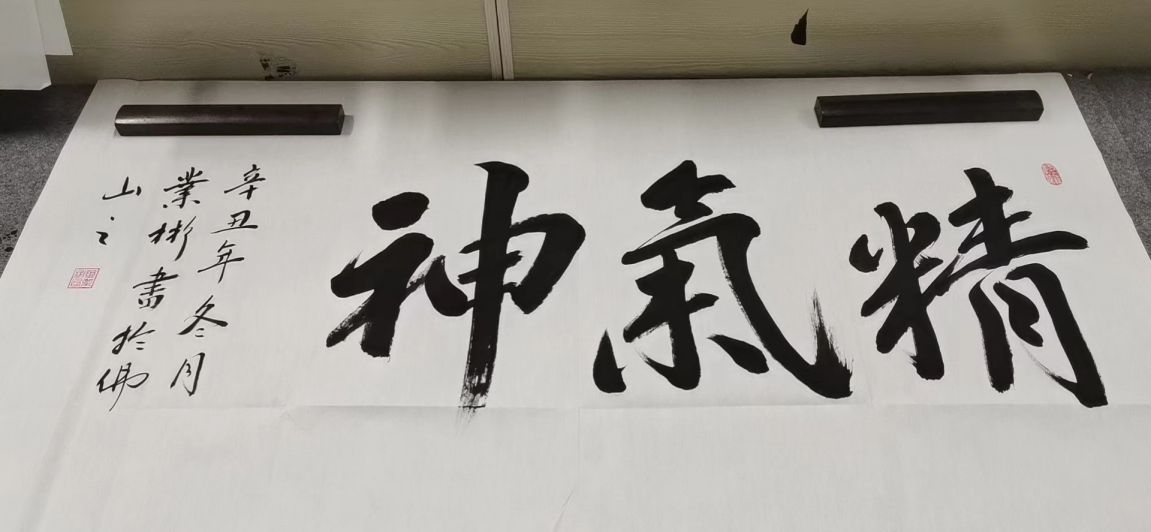 精氣神
辛丑年冬月
業彬書於佛
山之